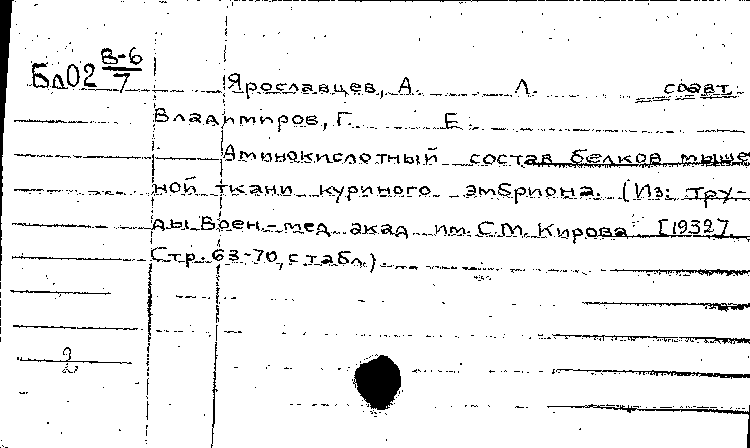 Бл02 В-6/7
Ярославцев, А. Л. соавт.
Владимиров, Г. Е.
Аминокислотный состав белков мыше
ной ткани куриного эмбриона. (Из: Тру-
ды Воен-мед акад им. С.М. Кирова [1932].
Стр. 63-70, с табл.).